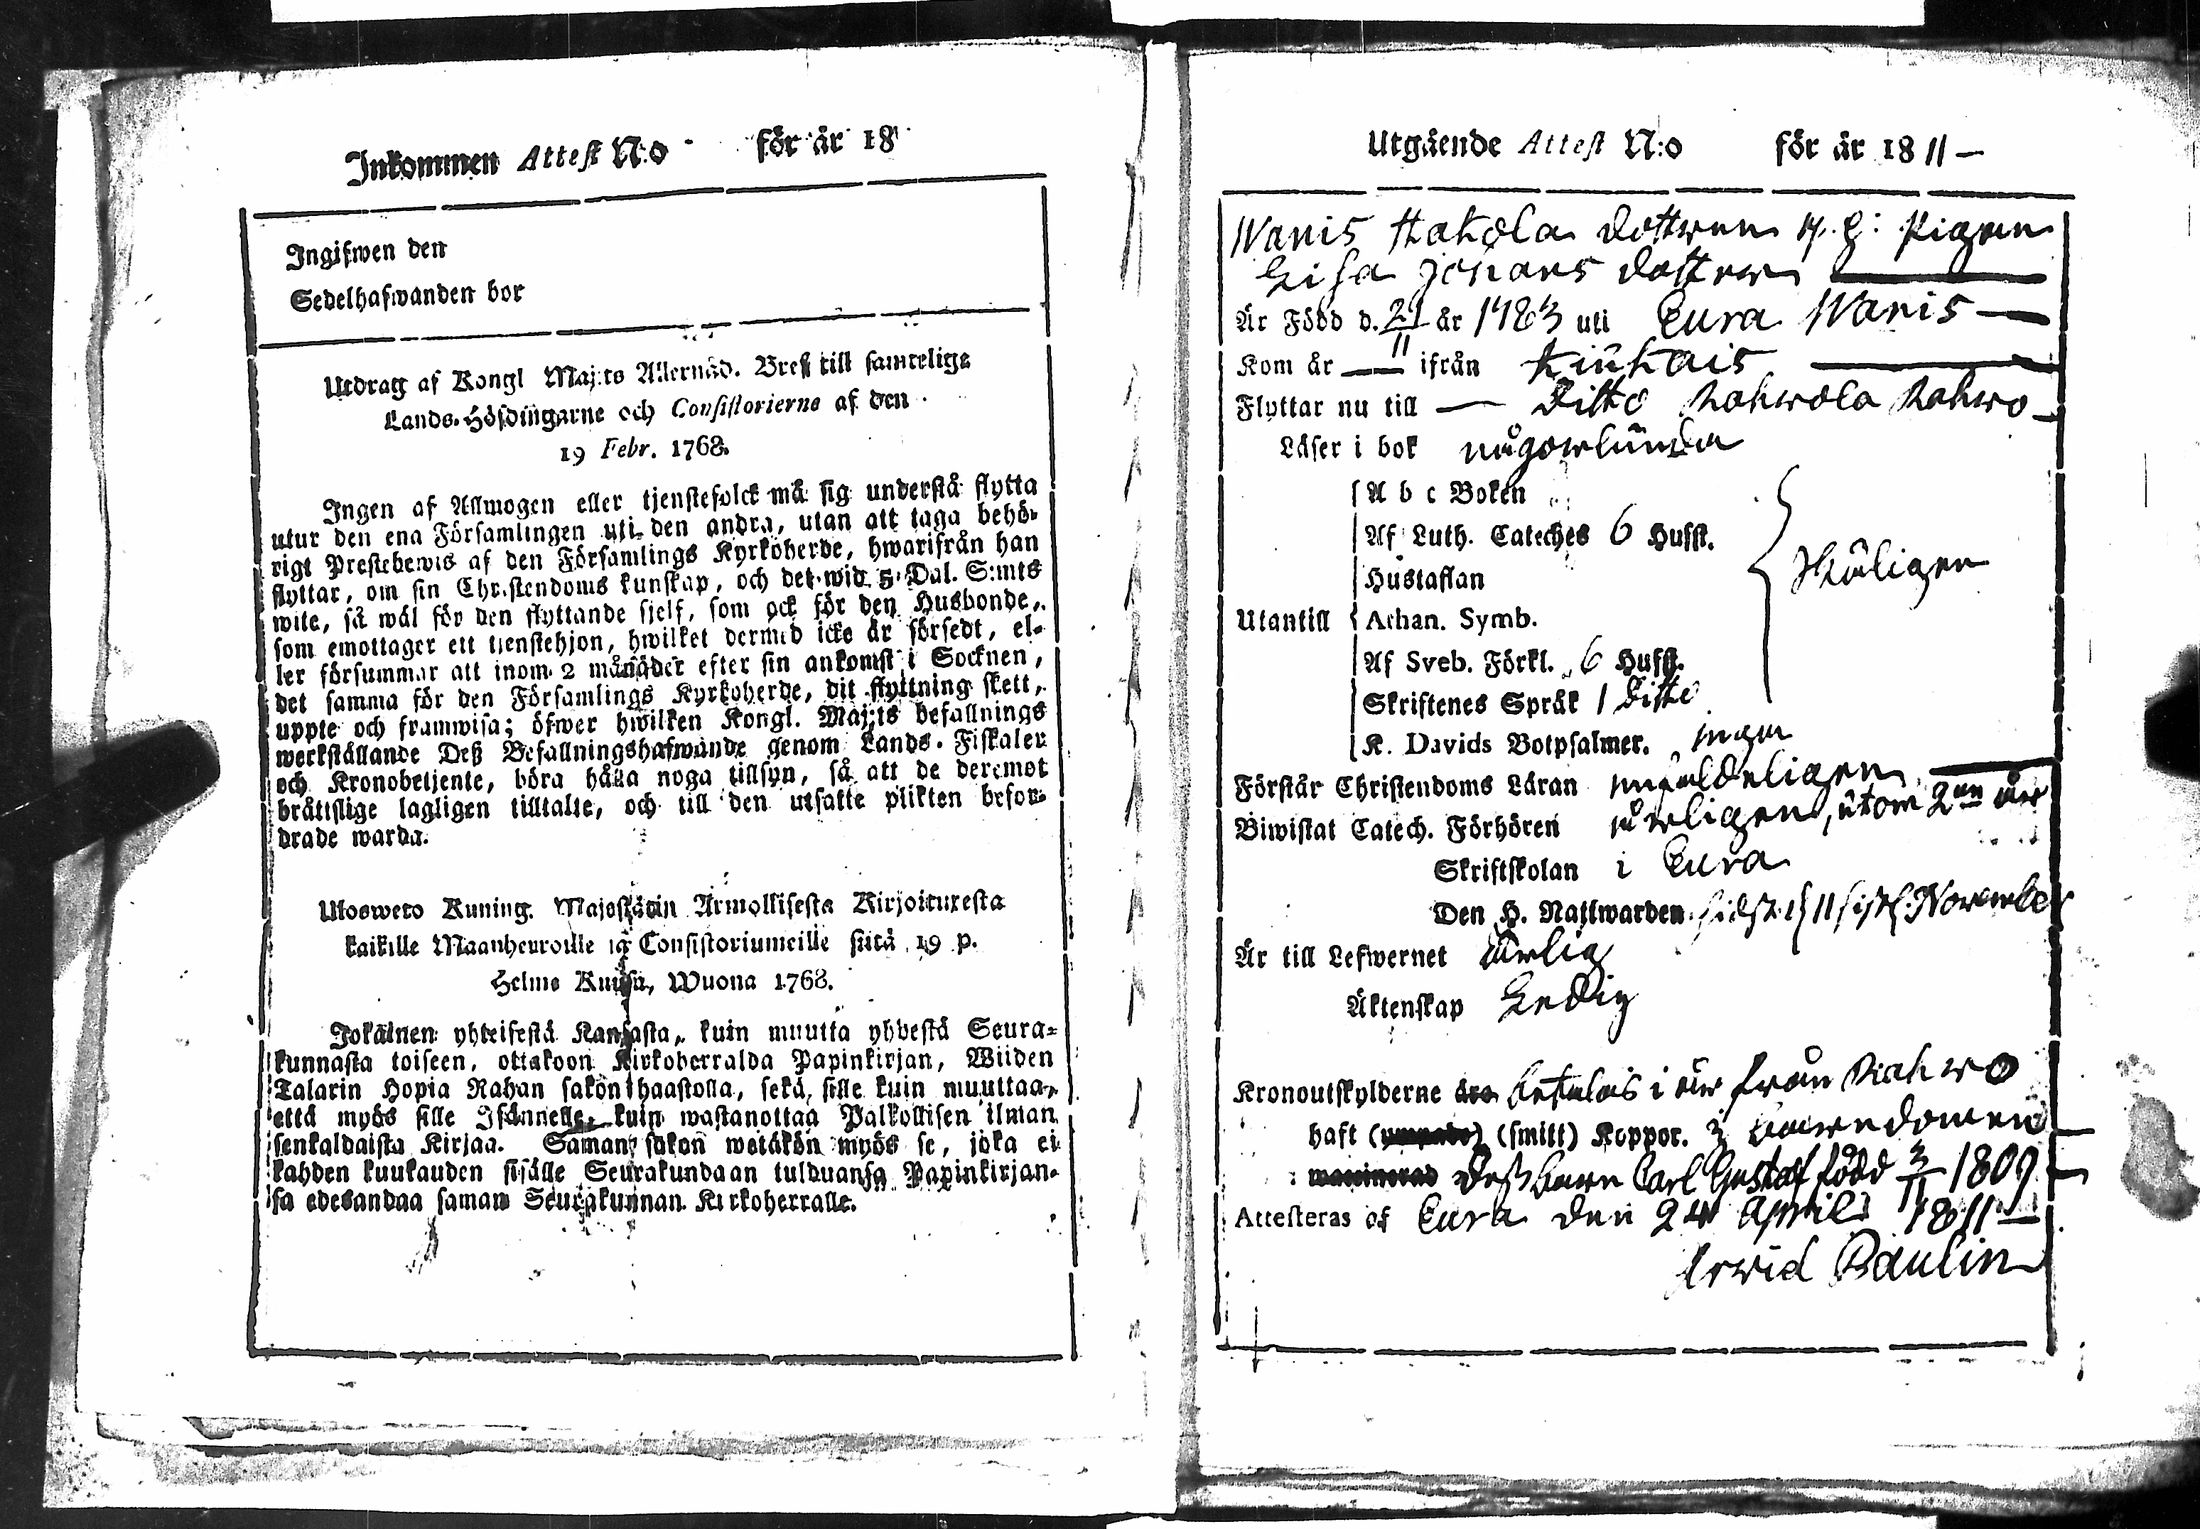 Inkommen Attest N:o för år 18
Ingifwen den
Sedelhafwanden bor
Utdrag af Kongl Maj:ts Allernåd. Bref till samtelige
Lands-Höfdingarne och Consistorierne af den
19 Febr. 1768.
Ingen af Allmogen eller tjenstefolck må sig understå flytta
utur den ena Församlingen uti den andra, utan att taga behö-
rigt Prestebewis af den Församlings Kyrkoherde, hwarifrån han
flyttar, om sin Christendoms kunskap, och det wid 5 Dal. S:mts
wite, så wäl för den flyttande sjelf, som ock för den Husbonde,
som emottager ett tjenstehjon, hwilket dermed icke är försedt, el-
ler försummar att inom 2 månader efter sin ankomst i Socknen,
det samma för den Församlings Kyrkoherde, dit flyttning skett,
uppte och framwisa; öfwer hwilken Kongl. Maj:ts befallnings
werkställande Deß Befallningshafwande genom Lands-Fiskaler
och Kronobetjente, böra hålla noga tillsyn, så att de deremot
bråttslige lagligen tilltalte, och till den utsatte plikten befor-
drade warda.
Ulosweto Kuning. Majestätin Armollisesta Kirjoituxesta
kaikille Maanherroille ja Consistoriumeille siitä 19 p.
Helme Kuusa, Wuona 1768.
Jokainen yhteisestä Kansasta, kuin muutta yhdestä Seura-
kunnasta toiseen, ottakoon Kirkoherralda Papinkirjan, Wiiden
Talarin Hopia Rahan sakon haastolla, sekä sille kuin muuttaa,
että myös sille Isännelle, kuin wastanottaa Palkollisen ilman
senkaldaista Kirjaa. Saman sakon wetäkön myös se, joka ei
kahden kuukauden sisälle Seurakundaan tulduansa Papinkirjan-
sa edesandaa saman Seurakunnan Kirkoherralle.
Utgående Attest N:o för år 1811 —
Wanis Hakola dottren N. P: Pigan
Lisa Johans dotter
Är Född d. 21/11 år 1783 uti Eura Wanis —
Kom år — ifrån Kiukais
Flyttar nu till — Ditto Rahwola Rahwo
Läser i bok någorlunda
A b c Boken
Af Luth. Cateches 6 Hufst.
Hustaflan
Skäligen
Utantill Athan. Symb.
Af Sveb. Förkl. 6 Hufst.
Skriftenes Språk 1 Ditto
K. Davids Botpsalmer. ingen
Förstår Christendoms Läran enfaldeligen
Biwistat Catech. Förhören årligen, utom 2ne år
Skriftskolan i Eura
Den H. Nattwarden November
Är till Lefwernet ärlig
Äktenskap Ledig
Kronoutskylderne äro betalas i år från Rahwo
haft (ympade) (smitt) Koppor. i barndomen
waccinerad Deß barn Carl Gustaf född 3/11 1809 —
Attesteras af Eura den 24 April 1811 —
Arwid Paulin